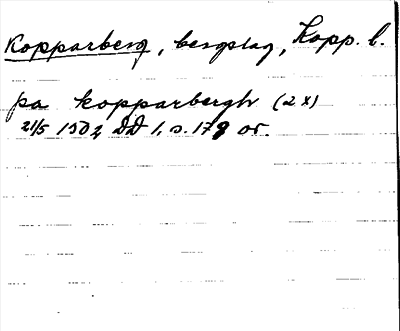 Kopparberg, bergslag, Kopp. l.
pa kopparbergh (2 x)
21/5 1502 DD 1, s. 178 or.